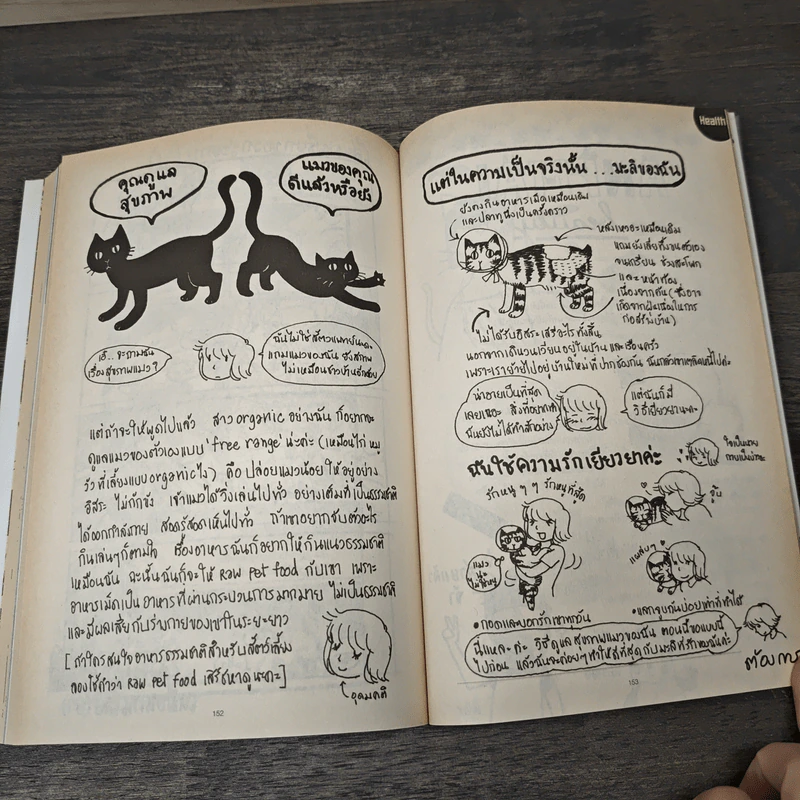 คุณดูแล
สุขภาพ
แมวของคุณ
ดีแล้วหรือยัง
เอ๊.. จะถามฉัน
เรื่องสุขภาพแมว?
ฉันไม่ใช่สัตวแพทย์นะคะ
แถมแมวของฉัน ยังสภาพ
ไม่เหมือนชาวบ้านอีกด้วย
แต่ถ้าจะให้พูดไปแล้ว สาว organic อย่างฉัน ก็อยากจะ
ดูแลแมวของตัวเองแบบ 'free range' น่ะค่ะ (เหมือนไก่ หมู
วัว ที่เลี้ยงแบบ organic ไง) คือ ปล่อยแมวน้อยให้อยู่อย่าง
อิสระ ไม่กักขัง เจ้าแมวได้วิ่งเล่นไปทั่ว อย่างเต็มที่เป็นธรรมชาติ
ได้ออกกำลังกาย สอดรู้สอดเห็นไปทั่ว ถ้าเขาอยากจับตัวอะไร
กินเล่นๆ ก็ตามใจ เรื่องอาหารฉันก็อยากให้กินแนวธรรมชาติ
เหมือนฉัน ฉะนั้นฉันก็จะให้ raw pet food กับเขา เพราะ
อาหารเม็ดเป็นอาหารที่ผ่านกระบวนการมากมาย ไม่เป็นธรรมชาติ
และมีผลเสียกับร่างกายของเขาในระยะยาว
[ ถ้าใครสนใจอาหารธรรมชาติสำหรับสัตว์เลี้ยง
ลองใช้คำว่า raw pet food เสิร์ชหาดูนะคะ ]
อุดมคติ
152
Health
แต่ในความเป็นจริงนั้น ...มะลิของฉัน
ยังคงกินอาหารเม็ดเหมือนเดิม
และปลาทูนึ่งเป็นครั้งคราว
หลังเหวอะเหมือนเดิม
แถมยังเลียทึ้งขนตัวเอง
จนเกรียน ช่วงสะโพก
และ หน้าท้อง
เนื่องจากคัน (ซึ่งอาจ
เกิดจากฝุ่นเส้นในการ
ก่อสร้างบ้าน)
ไม่ได้รับอิสระเสรีอะไรทั้งสิ้น
นอกจากเดินวนเวียนอยู่ในบ้าน และเรือนครัว
เพราะเราย้ายไปอยู่บ้านใหม่ที่ปากช่องกัน ฉันกลัวเขาเตลิดหนีไปค่ะ
น่าอายเป็นที่สุด
เลยเนอะ สิ่งที่อยากทำ
ฉันยังไม่ได้ทำสักอย่าง
แต่ฉันก็มี
วิธีเยียวยานะคะ
ฉันใช้ความรักเยียวยาค่ะ
รักหนูๆๆ รักหนูที่สุด
จุ๊บ
แผล็บๆ
•กอดและบอกรักเขาทุกวัน
•แลกจุบกันบ่อยเท่าที่ทำได้
นี่แหละค่ะ วิธีดูแลสุขภาพแมวของฉัน ตอนนี้ขอแบบนี้
ไปก่อน แล้วฉันจะค่อยๆ ทำให้ดีที่สุดกับมะลิที่รักของฉันค่ะ
153